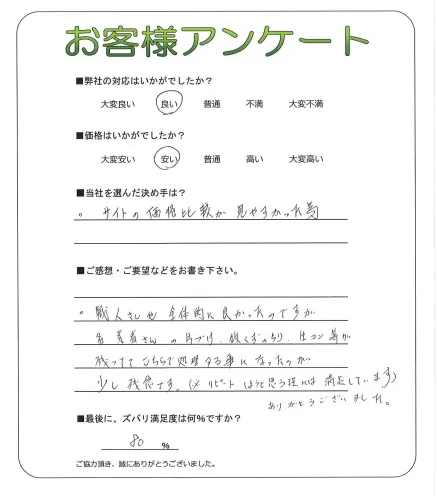 お客様アンケート
■弊社の対応はいかがでしたか？
大変良い 良い 普通 不満 大変不満
■価格はいかがでしたか？
大変安い 安い 普通 高い 大変高い
■当社を選んだ決め手は？
。サイトの価格比較が見やすかった為
■ご感想・ご要望などをお書き下さい。
。職人さんも全体的に良かったのですが
業者さんの片づけ、
残っててこちらで処理する事になったのが
少し残念です。(※リピートしようと思う程には満足しています)
ありがとうございました。
■最後に、ズバリ満足度は何%ですか？
80 %
ご協力頂き、誠にありがとうございました。